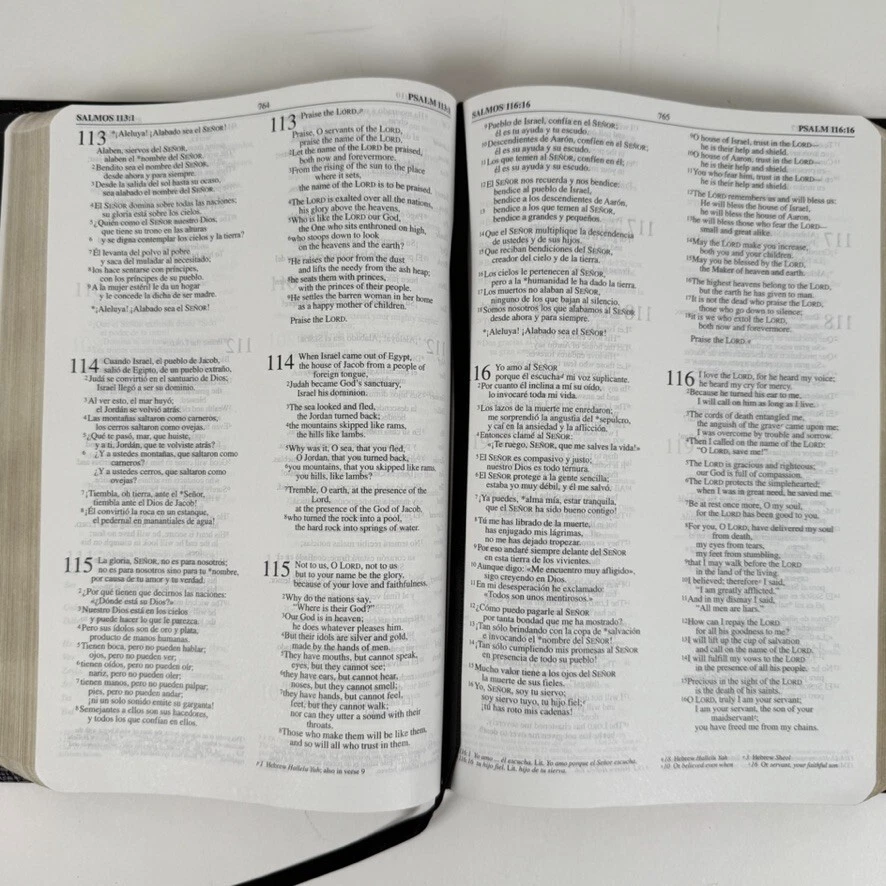 SALMOS 113:1
764
PSALM 113:1
113 *¡Aleluya! ¡Alabado sea el SEÑOR!
Alaben, siervos del SEÑOR,
alaben el *nombre del SEÑOR.
2Bendito sea el nombre del SEÑOR,
desde ahora y para siempre.
3Desde la salida del sol hasta su ocaso,
sea alabado el nombre del SEÑOR.
4El SEÑOR domina sobre todas las naciones;
su gloria está sobre los cielos.
5¿Quién como el SEÑOR nuestro Dios,
que tiene su trono en las alturas
6 y se digna contemplar los cielos y la tierra?
7Él levanta del polvo al pobre
y saca del muladar al necesitado;
8los hace sentarse con príncipes,
con los príncipes de su pueblo.
9A la mujer estéril le da un hogar
y le concede la dicha de ser madre.
*¡Aleluya! ¡Alabado sea el SEÑOR!
114 Cuando Israel, el pueblo de Jacob,
salió de Egipto, de un pueblo extraño,
2Judá se convirtió en el santuario de Dios;
Israel llegó a ser su dominio.
3Al ver esto, el mar huyó;
el Jordán se volvió atrás.
4Las montañas saltaron como carneros,
los cerros saltaron como ovejas.
5¿Qué te pasó, mar, que huiste,
y a ti, Jordán, que te volviste atrás?
6 ¿Y a ustedes montañas, que saltaron como
carneros?
¿Y a ustedes cerros, que saltaron como
ovejas?
7¡Tiembla, oh tierra, ante el *Señor,
tiembla ante el Dios de Jacob!
8¡Él convirtió la roca en un estanque,
el pedernal en manantiales de agua!
115 La gloria, SEÑOR, no es para nosotros;
no es para nosotros sino para tu *nombre,
por causa de tu amor y tu verdad.
2¿Por qué tienen que decirnos las naciones:
«¿Dónde está su Dios?»
3Nuestro Dios está en los cielos
y puede hacer lo que le parezca.
4Pero sus ídolos son de oro y plata,
producto de manos humanas.
5Tienen boca, pero no pueden hablar;
ojos, pero no pueden ver;
6tienen oídos, pero no pueden oír;
nariz, pero no pueden oler;
7tienen manos, pero no pueden palpar;
pies, pero no pueden andar;
¡ni un solo sonido emite su garganta!
8Semejantes a ellos son sus hacedores,
y todos los que confían en ellos.
113 Praise the LORD.
Praise, O servants of the LORD,
praise the name of the LORD.
2Let the name of the LORD be praised,
both now and forevermore.
3From the rising of the sun to the place
where it sets,
the name of the LORD is to be praised.
4The LORD is exalted over all the nations,
his glory above the heavens.
5Who is like the LORD our God,
the One who sits enthroned on high,
6who stoops down to look
on the heavens and the earth?
7He raises the poor from the dust
and lifts the needy from the ash heap;
8he seats them with princes,
with the princes of their people.
9He settles the barren woman in her home
as a happy mother of children.
Praise the LORD.
114 When Israel came out of Egypt,
the house of Jacob from a people of
foreign tongue,
2Judah became God's sanctuary,
Israel his dominion.
3The sea looked and fled,
the Jordan turned back;
4the mountains skipped like rams,
the hills like lambs.
5Why was it, O sea, that you fled,
O Jordan, that you turned back,
6you mountains, that you skipped like rams,
you hills, like lambs?
7Tremble, O earth, at the presence of the
Lord,
at the presence of the God of Jacob,
8who turned the rock into a pool,
the hard rock into springs of water.
115 Not to us, O LORD, not to us
but to your name be the glory,
because of your love and faithfulness.
2Why do the nations say,
"Where is their God?"
3Our God is in heaven;
he does whatever pleases him.
4But their idols are silver and gold,
made by the hands of men.
5They have mouths, but cannot speak,
eyes, but they cannot see;
6they have ears, but cannot hear,
noses, but they cannot smell;
7they have hands, but cannot feel,
feet, but they cannot walk;
nor can they utter a sound with their
throats.
8Those who make them will be like them,
and so will all who trust in them.
1 Hebrew Hallelu Yah; also in verse 9
SALMOS 116:16
765
PSALM 116:16
9Pueblo de Israel, confía en el SEÑOR;
él es tu ayuda y tu escudo.
10Descendientes de Aarón, confíen en el SEÑOR;
él es su ayuda y su escudo.
11Los que temen al SEÑOR, confíen en él;
él es su ayuda y su escudo.
12El SEÑOR nos recuerda y nos bendice:
bendice al pueblo de Israel,
bendice a los descendientes de Aarón,
13 bendice a los que temen al SEÑOR,
bendice a grandes y pequeños.
14Que el SEÑOR multiplique la descendencia
de ustedes y de sus hijos.
15Que reciban bendiciones del SEÑOR,
creador del cielo y de la tierra.
16Los cielos le pertenecen al SEÑOR,
pero a la *humanidad le ha dado la tierra.
17Los muertos no alaban al SEÑOR,
ninguno de los que bajan al silencio.
18Somos nosotros los que alabamos al SEÑOR
desde ahora y para siempre.
*¡Aleluya! ¡Alabado sea el SEÑOR!
16 Yo amo al SEÑOR
porque él escucha mi voz suplicante.
2Por cuanto él inclina a mí su oído,
lo invocaré toda mi vida.
3Los lazos de la muerte me enredaron;
me sorprendió la angustia del *sepulcro,
y caí en la ansiedad y la aflicción.
4Entonces clamé al SEÑOR:
«¡Te ruego, SEÑOR, que me salves la vida!»
5El SEÑOR es compasivo y justo;
nuestro Dios es todo ternura.
6El SEÑOR protege a la gente sencilla;
estaba yo muy débil, y él me salvó.
7¡Ya puedes, *alma mía, estar tranquila,
que el SEÑOR ha sido bueno contigo!
8Tú me has librado de la muerte,
has enjugado mis lágrimas,
no me has dejado tropezar.
9Por eso andaré siempre delante del SEÑOR
en esta tierra de los vivientes.
10Aunque digo: «Me encuentro muy afligido»,
sigo creyendo en Dios.
11En mi desesperación he exclamado:
«Todos son unos mentirosos.»
12¿Cómo puedo pagarle al SEÑOR
por tanta bondad que me ha mostrado?
13¡Tan sólo brindando con la copa de *salvación
e invocando el *nombre del SEÑOR!
14¡Tan sólo cumpliendo mis promesas al SEÑOR
en presencia de todo su pueblo!
15Mucho valor tiene a los ojos del SEÑOR
la muerte de sus fieles.
16Yo, SEÑOR, soy tu siervo;
soy siervo tuyo, tu hijo fiel;
¡tú has roto mis cadenas!
116:1 Yo amo ... él escucha. Lit. Yo amo porque el Señor escucha.
116:16 tu hijo fiel. Lit. hijo de tu sierva.
9O house of Israel, trust in the LORD—
he is their help and shield.
10O house of Aaron, trust in the LORD—
he is their help and shield.
11You who fear him, trust in the LORD—
he is their help and shield.
12The LORD remembers us and will bless us:
He will bless the house of Israel,
he will bless the house of Aaron,
13he will bless those who fear the LORD—
small and great alike.
14May the LORD make you increase,
both you and your children.
15May you be blessed by the LORD,
the Maker of heaven and earth.
16The highest heavens belong to the LORD,
but the earth he has given to man.
17It is not the dead who praise the LORD,
those who go down to silence;
18it is we who extol the LORD,
both now and forevermore.
Praise the LORD.
116 I love the LORD, for he heard my voice;
he heard my cry for mercy.
2Because he turned his ear to me,
I will call on him as long as I live.
3The cords of death entangled me,
the anguish of the grave came upon me;
I was overcome by trouble and sorrow.
4Then I called on the name of the LORD:
"O LORD, save me!"
5The LORD is gracious and righteous;
our God is full of compassion.
6The LORD protects the simplehearted;
when I was in great need, he saved me.
7Be at rest once more, O my soul,
for the LORD has been good to you.
8For you, O LORD, have delivered my soul
from death,
my eyes from tears,
my feet from stumbling,
9that I may walk before the LORD
in the land of the living.
10I believed; therefore I said,
"I am greatly afflicted."
11And in my dismay I said,
"All men are liars."
12How can I repay the LORD
for all his goodness to me?
13I will lift up the cup of salvation
and call on the name of the LORD.
14I will fulfill my vows to the LORD
in the presence of all his people.
15Precious in the sight of the LORD
is the death of his saints.
16O LORD, truly I am your servant;
I am your servant, the son of your
maidservant;
you have freed me from my chains.
18 Hebrew Hallelu Yah 3 Hebrew Sheol
10 Or believed even when 16 Or servant, your faithful son